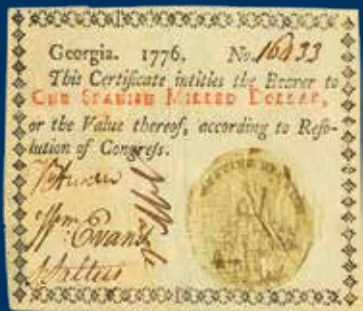 Georgia. 1776. No. 16433
This Certificate intitles the Bearer to
One Spanish Milled Dollar,
or the Value thereof, according to Reso-
lution of Congress.
Wm Evans